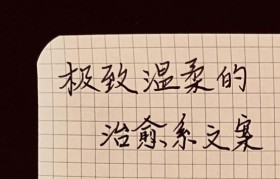 极致温柔的
治愈系文案